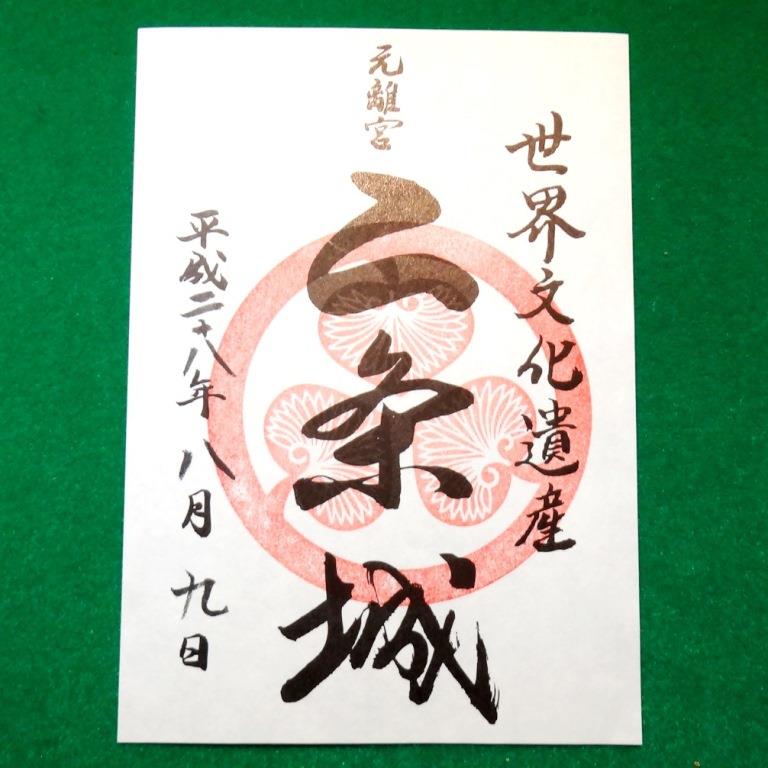 世界文化遺産
元離宮
二条城
平成二十八年 八月 九日